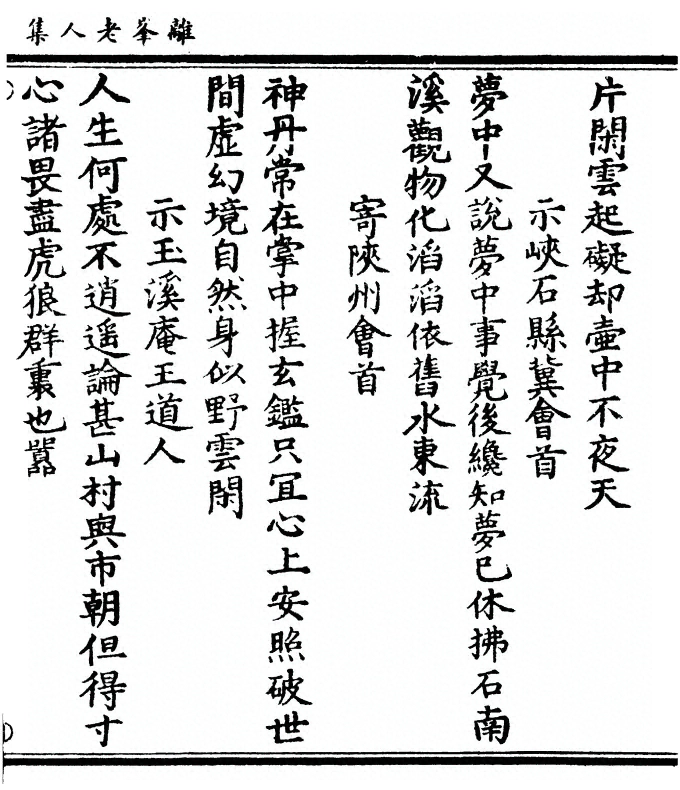 離峯老人集
片閑雲起礙却壺中不夜天
示峽石縣冀會首
夢中又說夢中事覺後纔知夢已休拂石南
溪觀物化滔滔依舊水東流
寄陝州會首
神丹常在掌中握玄鑑只冝心上安照破世
間虛幻境自然身似野雲閑
示玉溪庵王道人
人生何處不逍遥論甚山村與市朝但得寸
心諸畏盡虎狼群裏也囂